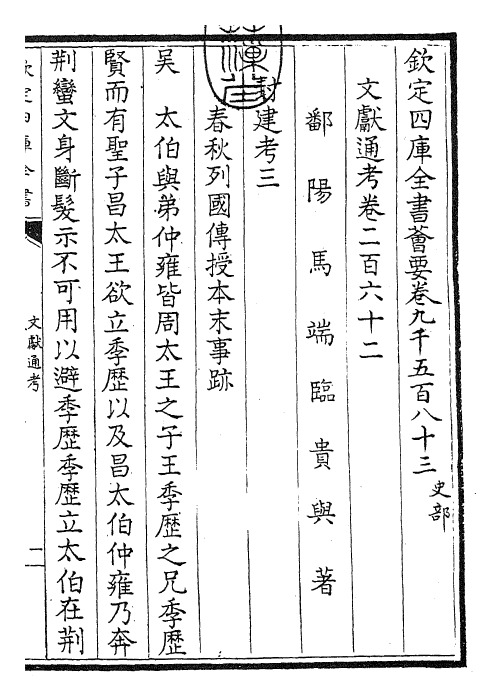 欽定四庫全書薈要卷九千五百八十三 史部
文獻通考卷二百六十二
鄱陽馬端臨貴與著
封建考三
春秋列國傳授本末事跡
吳 太伯與弟仲雍皆周太王之子王季歷之兄季歷
賢而有聖子昌太王欲立季歷以及昌太伯仲雍乃奔
荆蠻文身斷髮示不可用以避季歷季歷立太伯在荆
欽定四庫全書
文獻通考